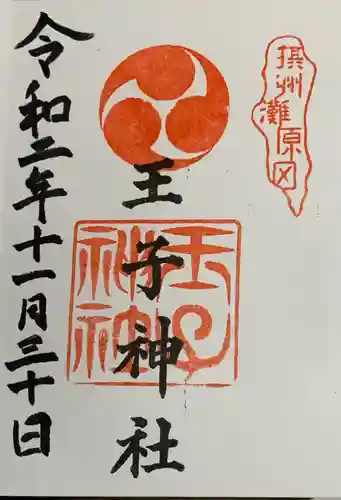 摂州
灘原田
王子神社
王子
神社
令和二年十一月三十日